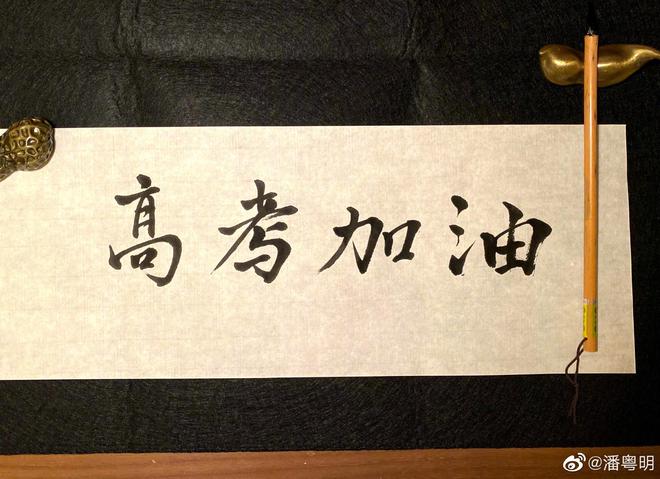 高考加油
@潘粤明